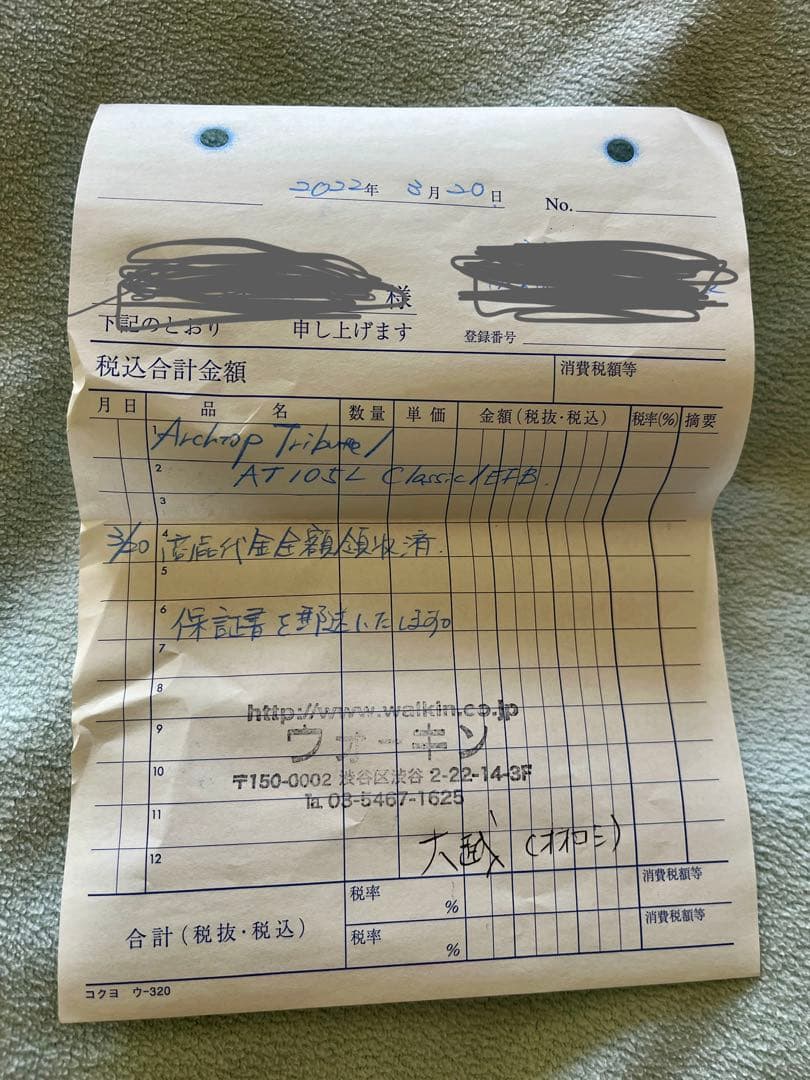 2022年 3月20日 No.
様
下記のとおり 申し上げます 登録番号
税込合計金額 消費税額等
月 日 品 名 数量 単価 金額(税抜・税込) 税率(%) 摘要
1 Archtop Tribute/
2 AT105L Classic/EFB.
3
4 3/20 商品代金全額領収済.
5
6 保証書を郵送いたします。
7
8
http://www.walkin.co.jp
9 ウォーキン
10 〒150-0002 渋谷区渋谷 2-22-14-3F
℡ 03-5467-1625
11
12 大越(オオコシ)
合計(税抜・税込) 税率 % 消費税額等
税率 % 消費税額等
コクヨ ウ-320